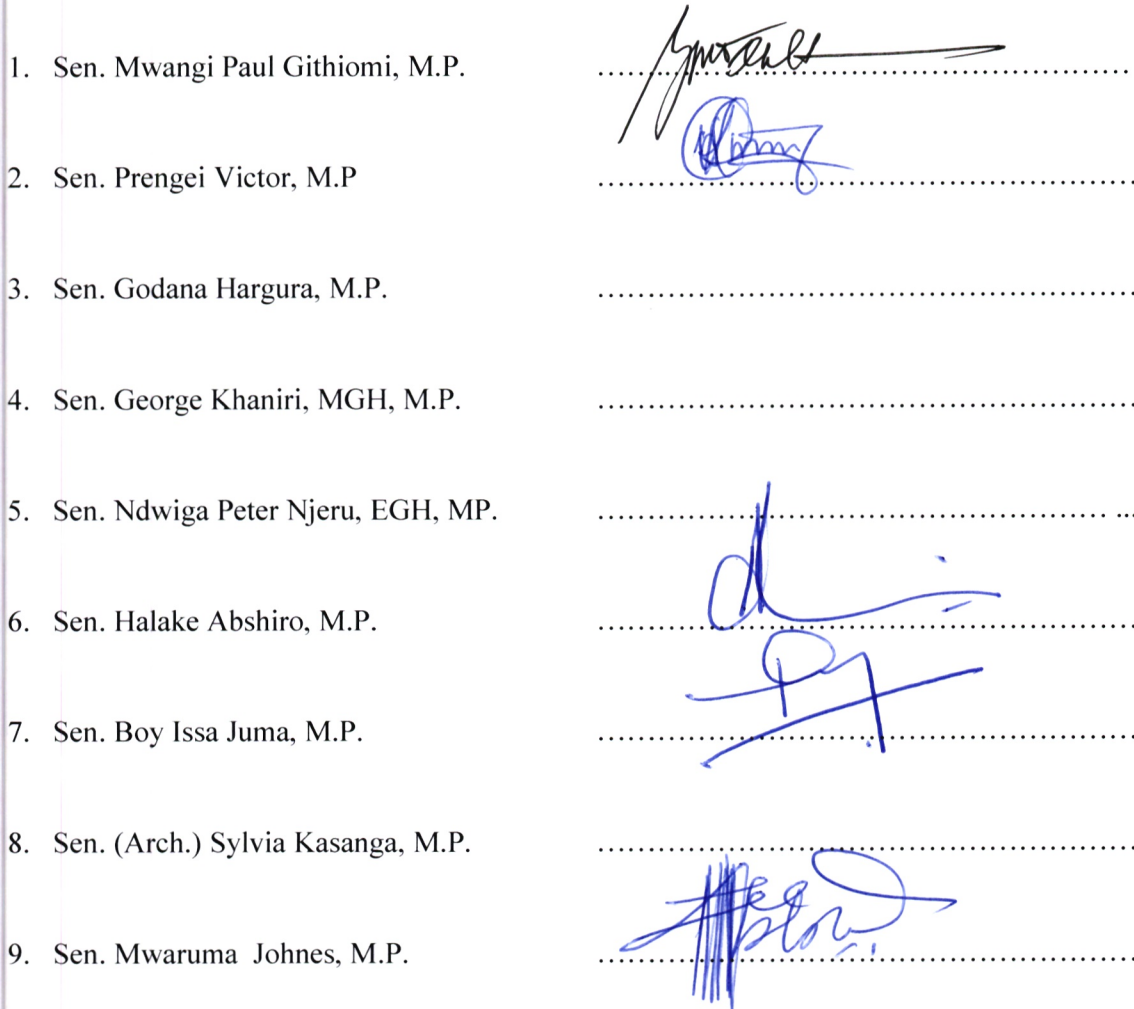 1. Sen. Mwangi Paul Githiomi, M.P. ........................................................
2. Sen. Prengei Victor, M.P ........................................................
3. Sen. Godana Hargura, M.P. ........................................................
4. Sen. George Khaniri, MGH, M.P. ........................................................
5. Sen. Ndwiga Peter Njeru, EGH, MP. ..................................................... ...
6. Sen. Halake Abshiro, M.P. ........................................................
7. Sen. Boy Issa Juma, M.P. ........................................................
8. Sen. (Arch.) Sylvia Kasanga, M.P. ........................................................
9. Sen. Mwaruma Johnes, M.P. ........................................................